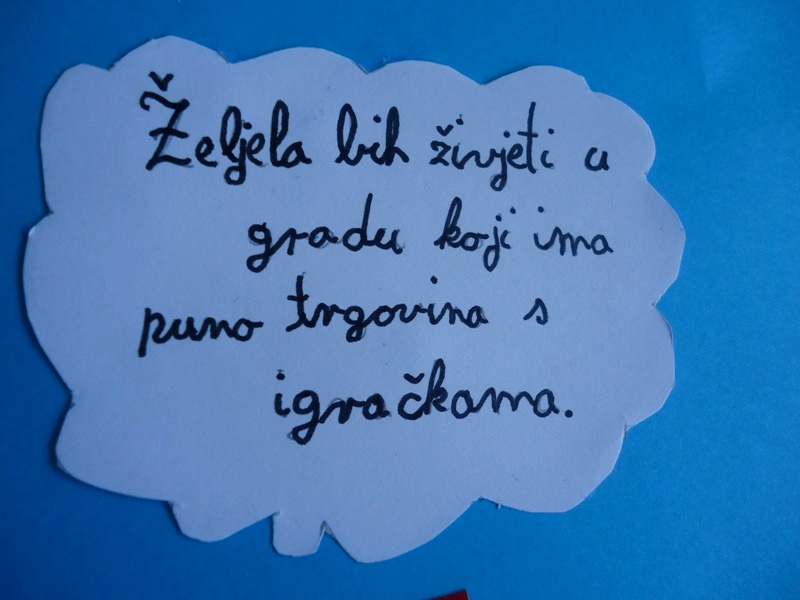 Željela bih živjeti u
gradu koji ima
puno trgovina s
igračkama.